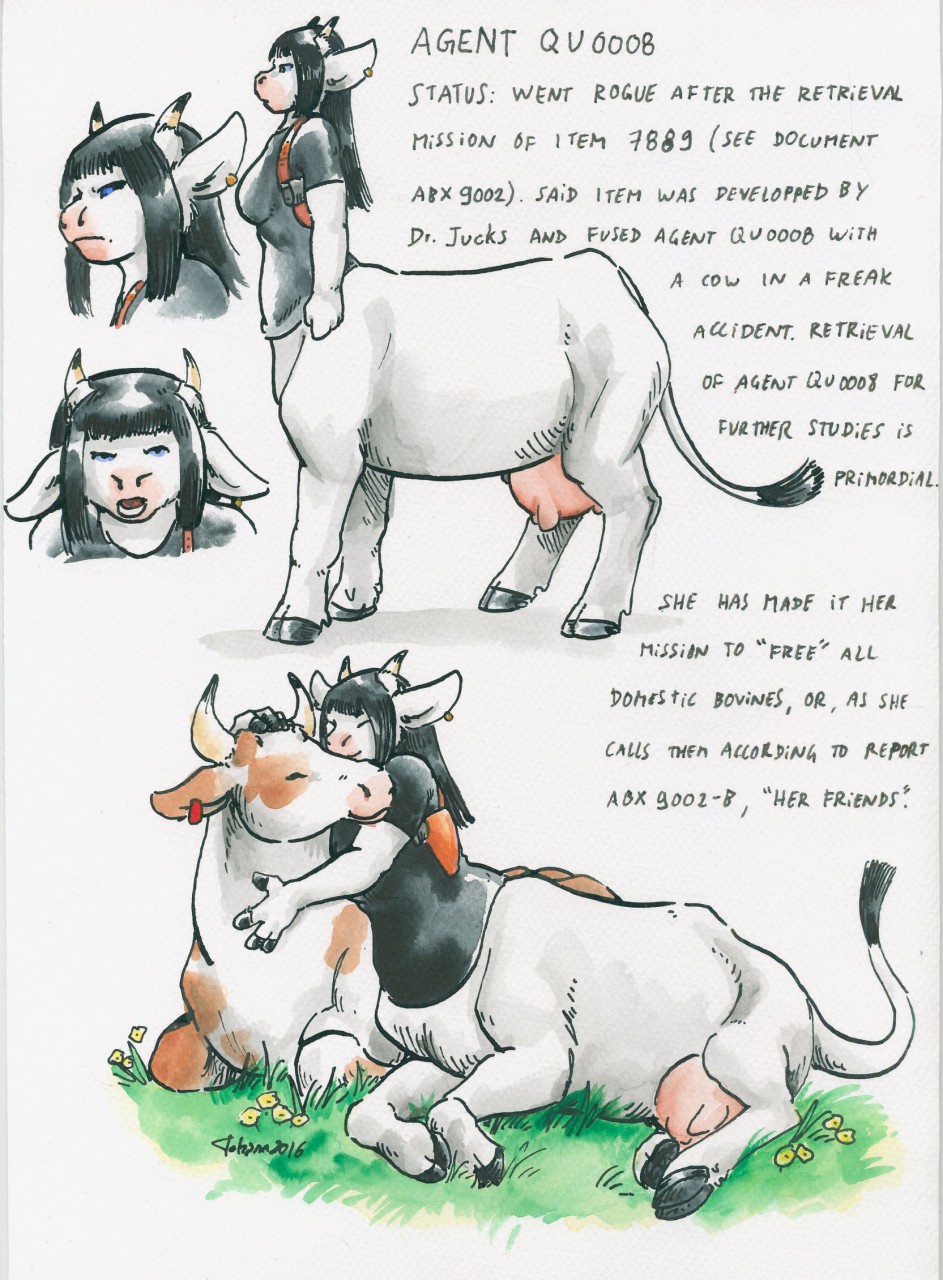 AGENT QU0008
STATUS: WENT ROGUE AFTER THE RETRIEVAL
MISSION OF ITEM 7889 (SEE DOCUMENT
ABX 9002). SAID ITEM WAS DEVELOPPED BY
Dr. JUCKS AND FUSED AGENT QU0008 WITH
A COW IN A FREAK
ACCIDENT. RETRIEVAL
OF AGENT QU0008 FOR
FURTHER STUDIES IS
PRIMORDIAL.
SHE HAS MADE IT HER
MISSION TO "FREE" ALL
DOMESTIC BOVINES, OR, AS SHE
CALLS THEM ACCORDING TO REPORT
ABX 9002-B, "HER FRIENDS".
2016